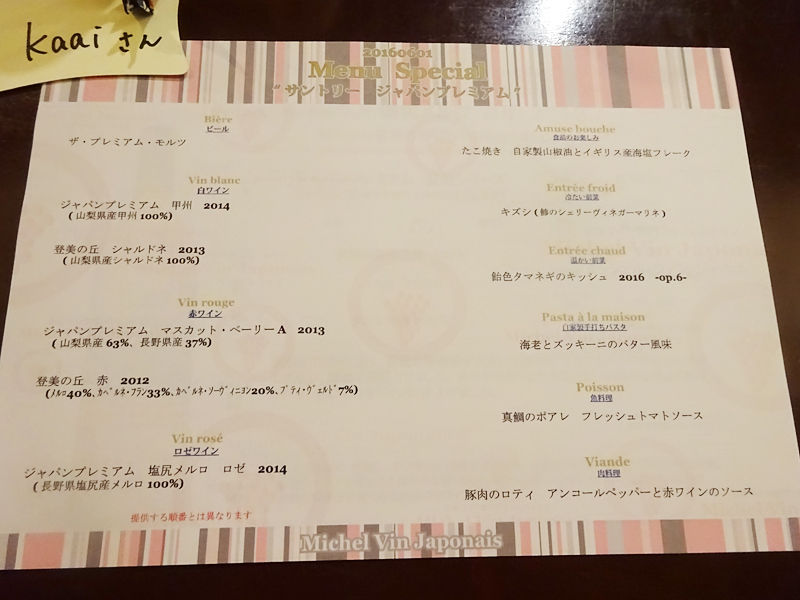 kaai さん
20160601
Menu Special
“サントリー ジャパンプレミアム”
Bière
ビール
ザ・プレミアム・モルツ
Vin blanc
白ワイン
ジャパンプレミアム 甲州 2014
(山梨県産甲州 100%)
登美の丘 シャルドネ 2013
(山梨県産シャルドネ 100%)
Vin rouge
赤ワイン
ジャパンプレミアム マスカット・ベーリーA 2013
(山梨県産 63%、長野県産 37%)
登美の丘 赤 2012
(ﾒﾙﾛ40%、ｶﾍﾞﾙﾈ・ﾌﾗﾝ33%、ｶﾍﾞﾙﾈ・ｿｰヴｨﾆヨﾝ20%、ﾌﾟﾃｨ・ヴｪﾙﾄﾞ7%)
Vin rosé
ロゼワイン
ジャパンプレミアム 塩尻メルロ ロゼ 2014
(長野県塩尻産メルロ 100%)
提供する順番とは異なります
Amuse bouche
食前のお楽しみ
たこ焼き 自家製山椒油とイギリス産海塩フレーク
Entrée froid
冷たい前菜
キズシ(鯵のシェリーヴィネガーマリネ)
Entrée chaud
温かい前菜
飴色タマネギのキッシュ 2016 -op.6-
Pasta à la maison
自家製手打ちパスタ
海老とズッキーニのバター風味
Poisson
魚料理
真鯛のポアレ フレッシュトマトソース
Viande
肉料理
豚肉のロティ アンコールペッパーと赤ワインのソース
Michel Vin Japonais